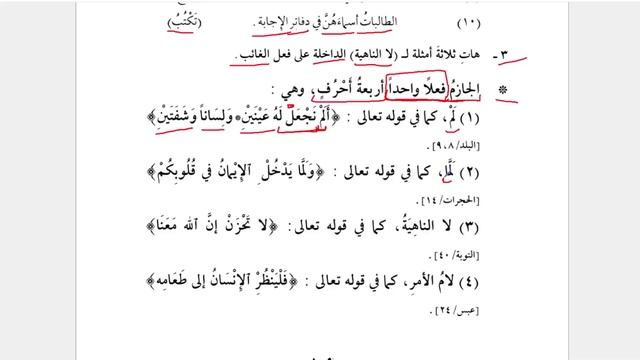 (١٠) الطالباتُ أسماءَهُنَّ في دفاترِ الإجابة . (تَكْتُبُ)
٣ - هاتِ ثلاثةَ أمثلة لـ (لا الناهية) الداخلة على فعل الغائب .
* الجازمُ فعلاً واحداً، أربعةُ أَحْرُفٍ، وهي :
(١) لَمْ، كما في قوله تعالى : ﴿أَلَمْ نَجْعَلْ لَهُ عَيْنَيْنِ * وَلِسَاناً وَشَفَتَيْنِ﴾
[البلد/٨، ٩] .
(٢) لَمَّا، كما في قوله تعالى : ﴿وَلَمَّا يَدْخُلِ الإِيْمَانُ في قُلُوبِكُمْ﴾
[الحجرات/١٤] .
(٣) لا الناهِيَةُ، كما في قوله تعالى : ﴿لا تَحْزَنْ إنَّ الله مَعَنَا﴾
[التوبة/٤٠] .
(٤) لامُ الأمرِ، كما في قوله تعالى : ﴿فَلْيَنْظُرِ الإِنْسَانُ إلى طَعَامِه﴾
[عبس/٢٤] .